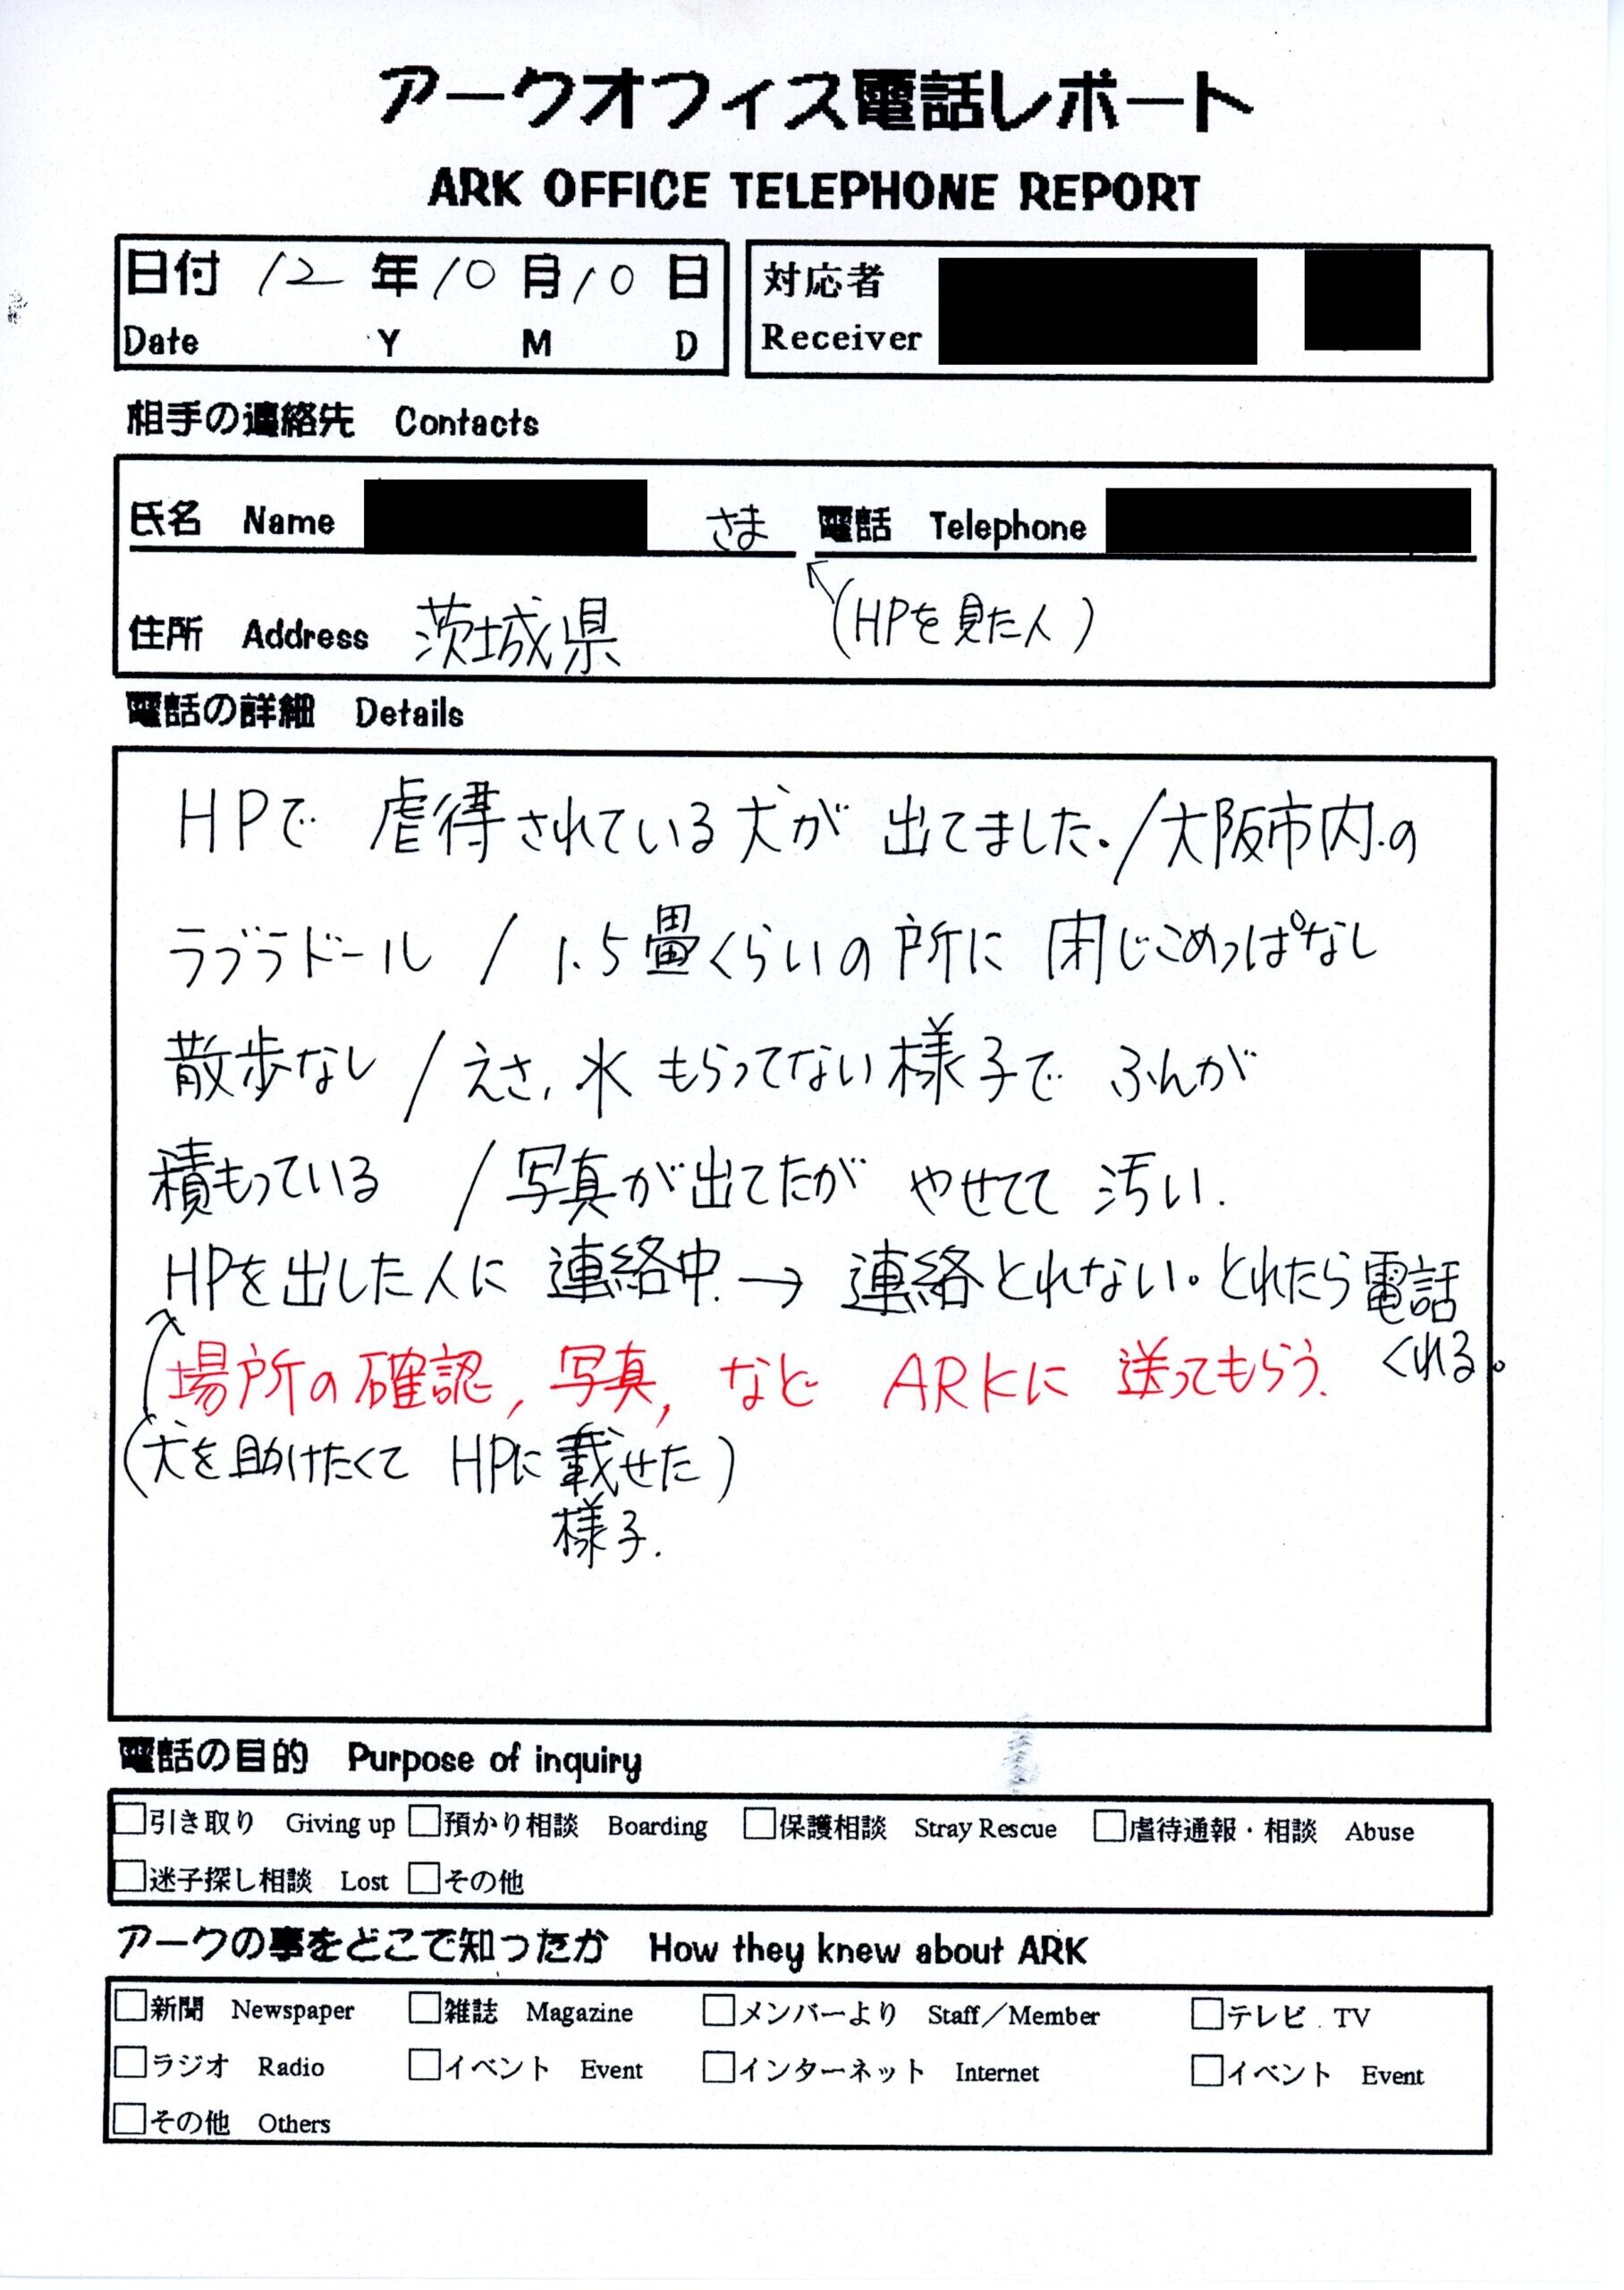 アークオフィス電話レポート
ARK OFFICE TELEPHONE REPORT
日付 12 年 10 月 10 日
Date Y M D
対応者
Receiver
相手の連絡先 Contacts
氏名 Name さま 電話 Telephone
住所 Address 茨城県 (HPを見た人)
電話の詳細 Details
HPで 虐待されている犬が 出てました。/大阪市内の
ラブラドール / 1.5畳くらいの所に 閉じこめっぱなし
散歩なし / えさ, 水 もらってない様子で ふんが
積もっている / 写真が出てたが やせてて 汚い.
HPを出した人に 連絡中. → 連絡とれない。とれたら電話
くれる。
場所の確認, 写真, など ARKに 送ってもらう.
(犬を助けたくて HPに載せた)
様子.
電話の目的 Purpose of inquiry
□引き取り Giving up □預かり相談 Boarding □保護相談 Stray Rescue □虐待通報・相談 Abuse
□迷子探し相談 Lost □その他
アークの事をどこで知ったか How they knew about ARK
□新聞 Newspaper □雑誌 Magazine □メンバーより Staff／Member □テレビ TV
□ラジオ Radio □イベント Event □インターネット Internet □イベント Event
□その他 Others